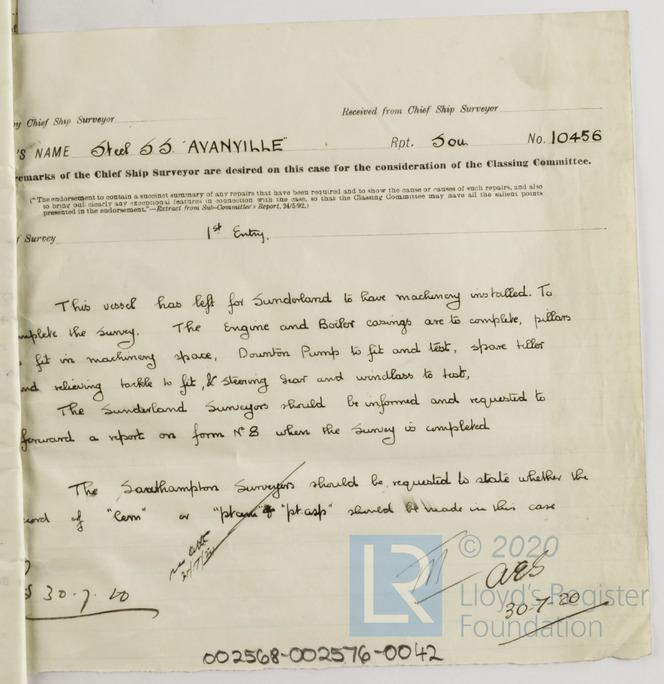 by Chief Ship Surveyor
Received from Chief Ship Surveyor
'S NAME Steel SS "AVANVILLE" Rpt. Sou No. 10456
emarks of the Chief Ship Surveyor are desired on this case for the consideration of the Classing Committee.
("The endorsement to contain a succinct summary of any repairs that have been required and to show the cause or causes of such repairs, and also
to bring out clearly any exceptional features in connection with the case, so that the Classing Committee may have all the salient points
presented in the endorsement."—Extract from Sub-Committee's Report, 24/5/92.)
f Survey 1st Entry.
This vessel has left for Sunderland to have machinery installed. To
mplete the survey. The Engine and Boiler casings are to complete, pillars
fit in machinery space, Downton Pump to fit and test, spare tiller
nd relieving tackle to fit, & steering gear and windlass to test,
The Sunderland Surveyors should be informed and requested to
forward a report on form No 8 when the survey is completed
The Southampton Surveyors should be requested to state whether the
cord of "Cem" or "pt cem & pt asp" should be made in this case
30.7.20
30-7-20
© 2020
LR
Lloyd's Register
Foundation
002568-002576-0042